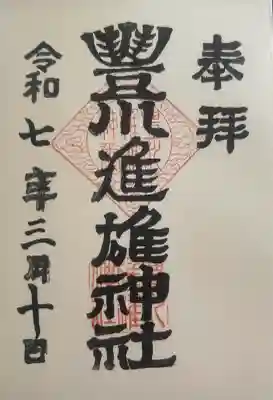 奉拝
豊川進雄神社
令和七年三月十日